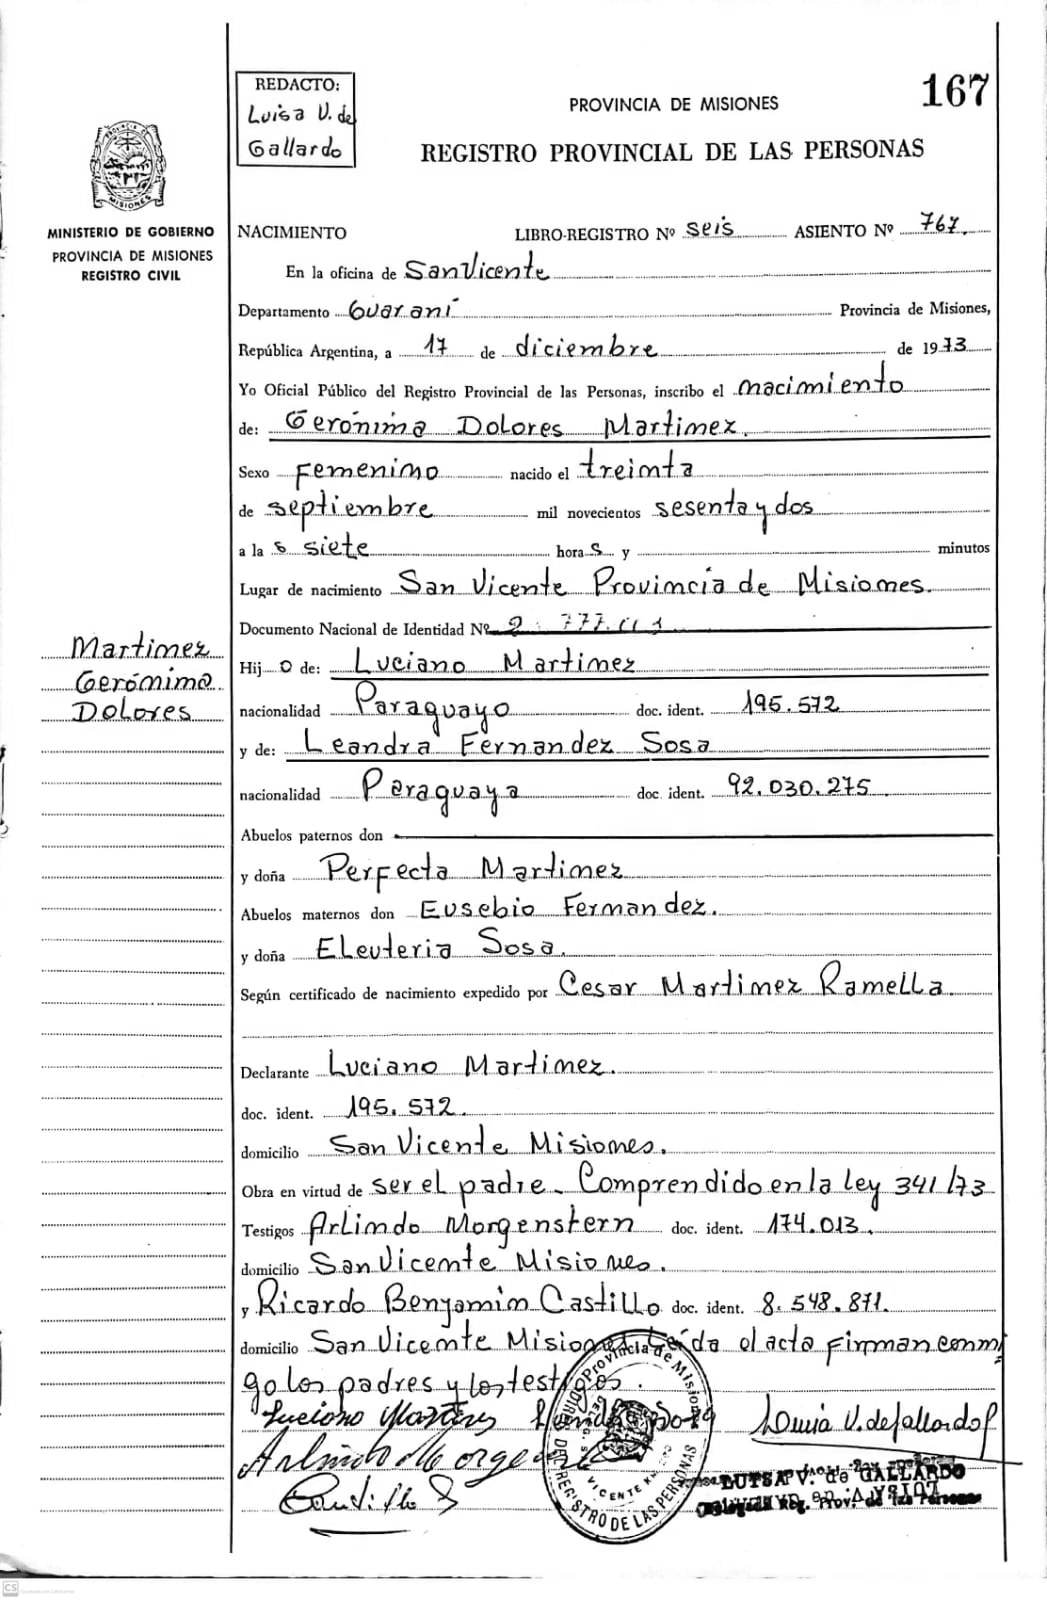 REDACTO:
Luisa V. de
Gallardo
167
PROVINCIA DE MISIONES
REGISTRO PROVINCIAL DE LAS PERSONAS
MINISTERIO DE GOBIERNO
PROVINCIA DE MISIONES
REGISTRO CIVIL
NACIMIENTO LIBRO-REGISTRO Nº seis ASIENTO Nº 767.
En la oficina de San Vicente
Departamento Guaraní Provincia de Misiones,
República Argentina, a 17 de diciembre de 1973
Yo Oficial Público del Registro Provincial de las Personas, inscribo el nacimiento
de: Gerónima Dolores Martinez.
Sexo Femenino nacido el treinta
de septiembre mil novecientos sesenta y dos
a la s siete hora s y minutos
Lugar de nacimiento San Vicente Provincia de Misiones.
Documento Nacional de Identidad Nº
Martinez
Gerónima
Dolores
Hij o de: Luciano Martinez
nacionalidad Paraguayo doc. ident. 195.572
y de: Leandra Fernandez Sosa
nacionalidad Paraguaya doc. ident. 92.030.275
Abuelos paternos don
y doña Perfecta Martinez
Abuelos maternos don Eusebio Fernandez.
y doña Eleuteria Sosa.
Según certificado de nacimiento expedido por Cesar Martinez Ramella.
Declarante Luciano Martinez.
doc. ident. 195.572.
domicilio San Vicente Misiones.
Obra en virtud de ser el padre. Comprendido en la ley 341/73
Testigos Arlindo Morgenstern doc. ident. 174.013.
domicilio San Vicente Misiones.
y Ricardo Benjamin Castillo doc. ident. 8.548.871.
domicilio San Vicente Misiones Leída el acta firman conmi
go los padres y los testigos.
Luciano Martinez
Luisa V. de Gallardo
Provincia de Misiones
REGISTRO DE LAS PERSONAS
LUISA V. de GALLARDO
Delegada Reg. Prov. de las Personas
CS